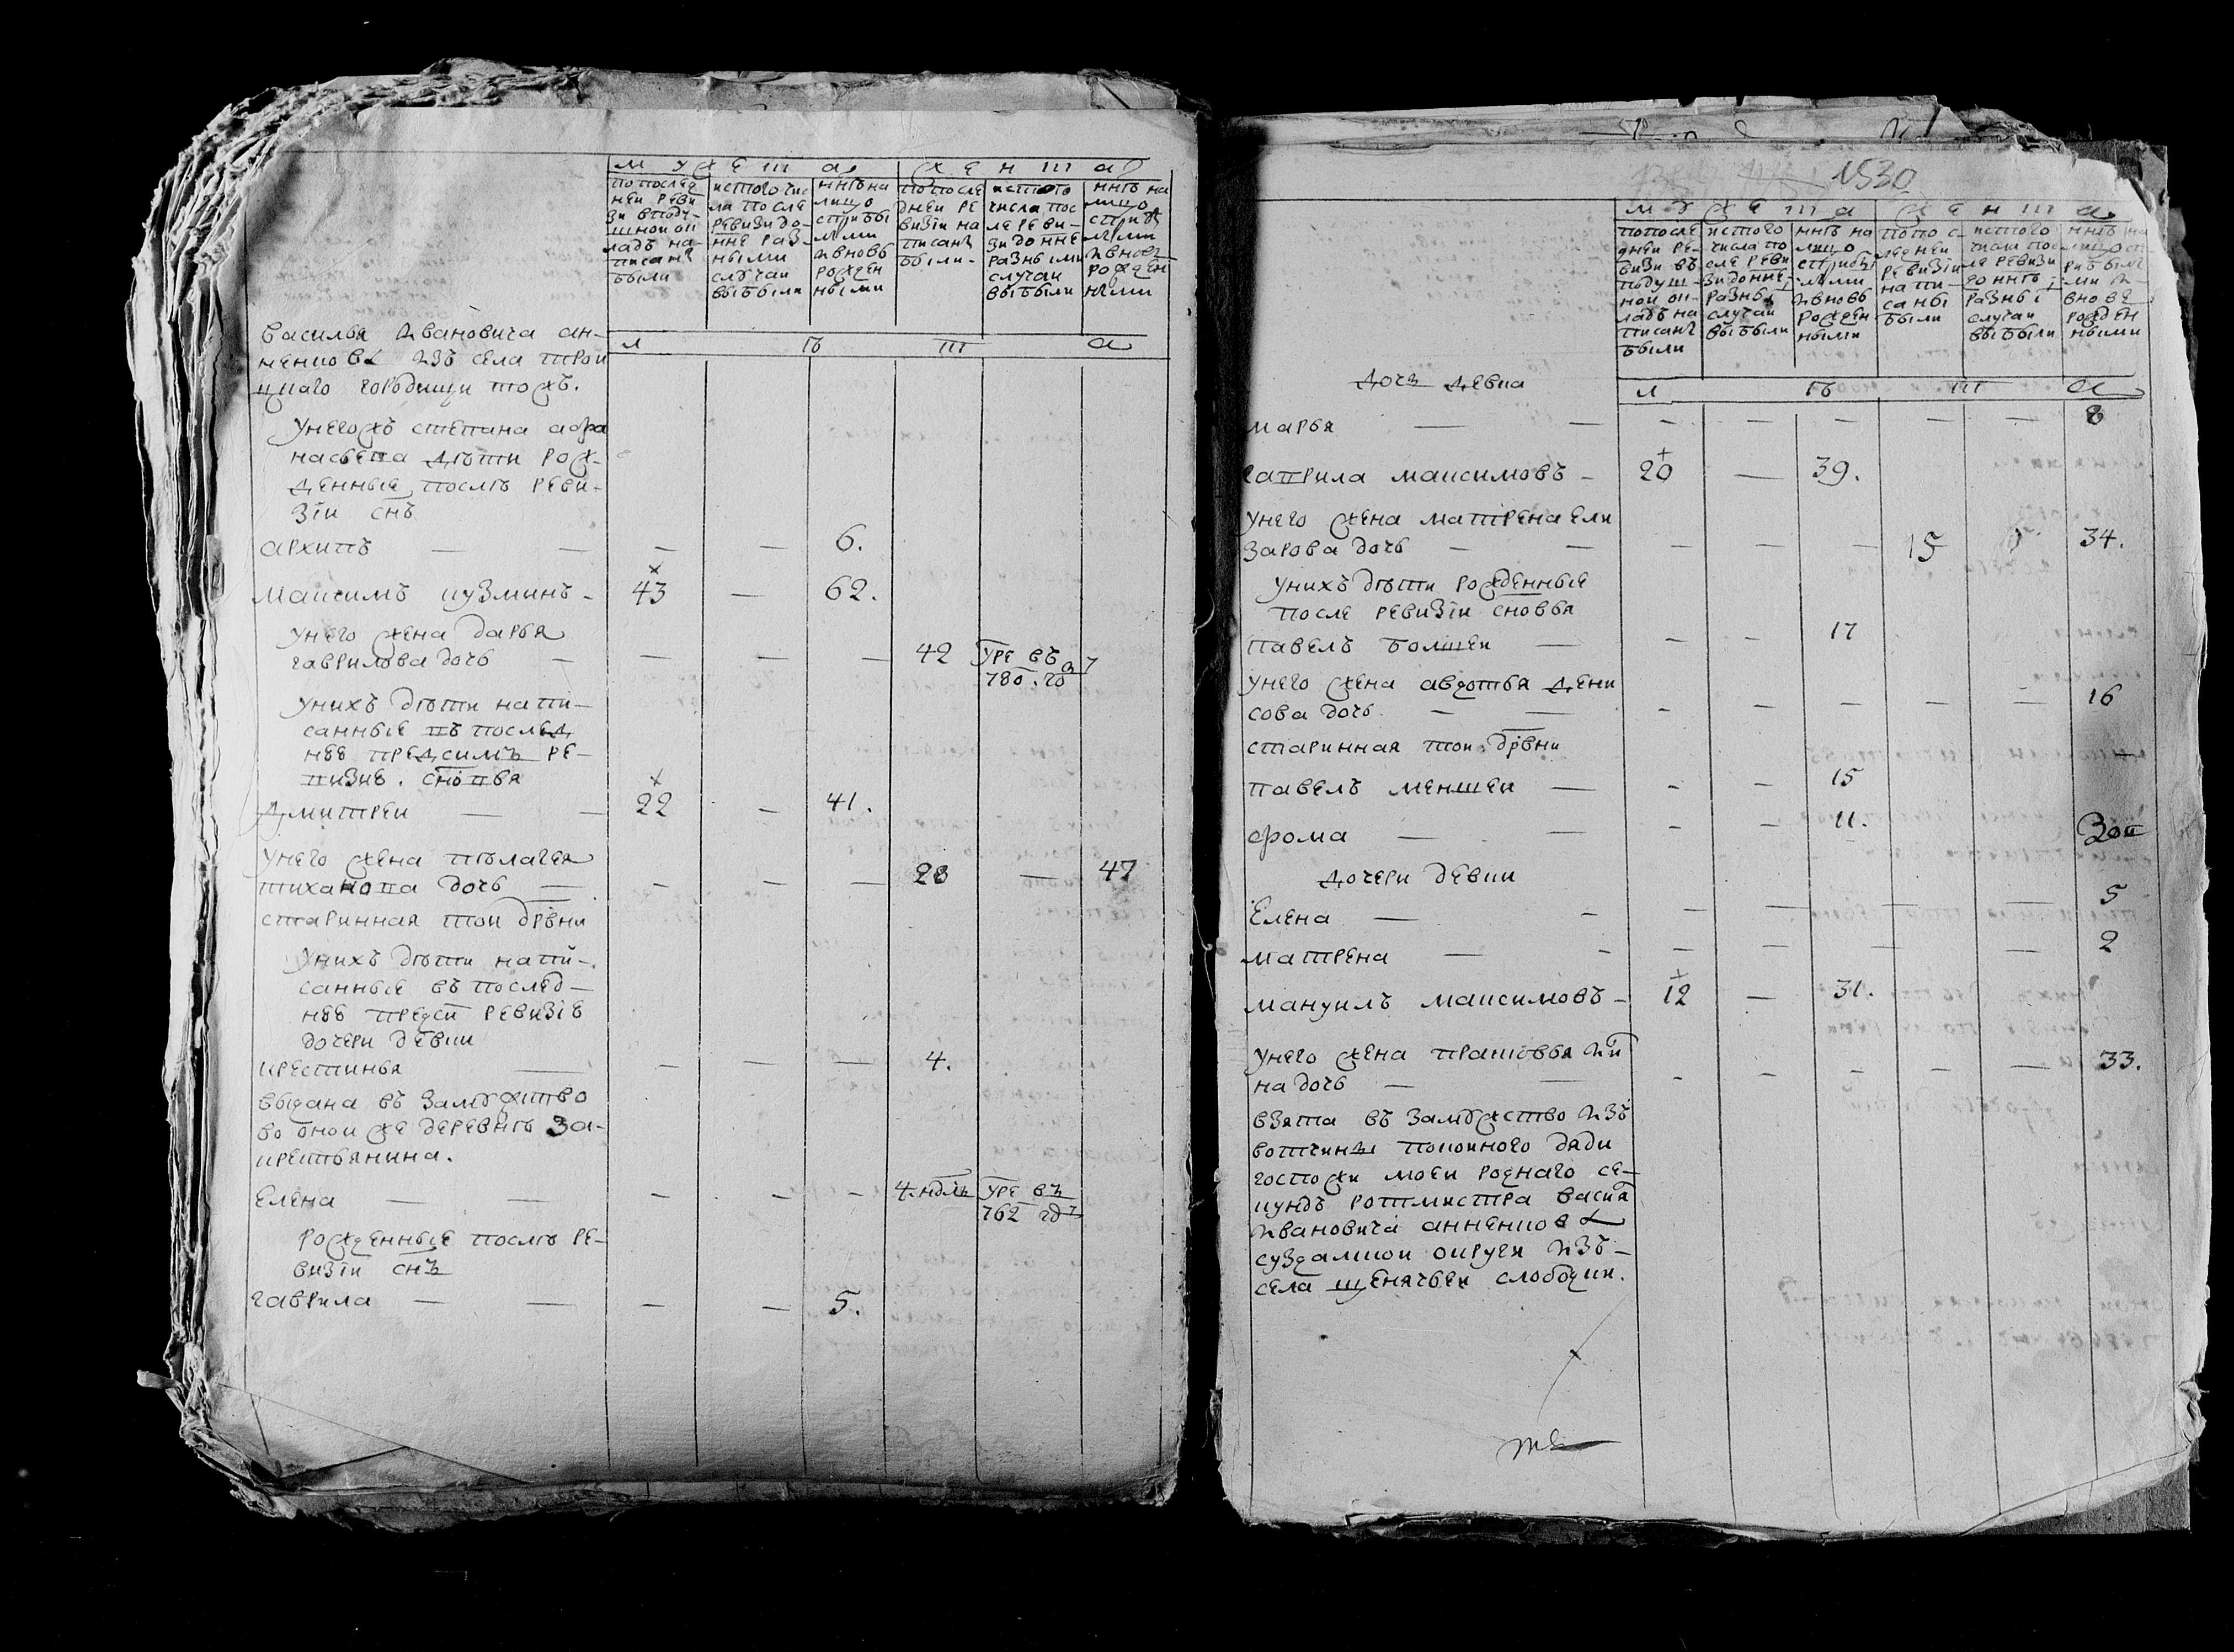 мужеска
женска
по послед
ней реви
зи в поду-
шной ок
ладъ на-
писанъ
были
ис того чис
ла после
ревизи до-
нне раз-
ными
случаи
выбыли
ннѣ на
лицо
с прибы
лыми
и вновь
рожден
ными
по после
дней ре
визи на
писанъ
были
ис того
числа пос
ле реви-
зи до нне
разными
случаи
выбыли
ннѣ на
лицо
с прибы
лыми
и вновь
рожден
ными
лѣта
Василья Ивановича ан-
ненкова изъ села трои
цкаго городищи тожъ.
У него жъ степана афа
насьева дѣти рож-
денные послѣ реви-
зіи снъ
архипъ — — — — 6.
максимъ кузминъ - 43 — 62.
У него жена дарья
гаврилова дочь — — — — 42 уре въ
780. го
У нихъ дѣти напи-
санные въ послед
нее предсимъ ре-
визие. сновья
Дмитреи — — 22 - 41.
У него жена пѣлагея
тиханова дочь — — — — 28 — 47
старинная тои дрвни
У нихъ дѣти напи-
санные въ послед-
нее предси ревизіе
дочери девки
крестинья — — — — 4.
выдана въ замужство
во онои же деревнѣ за-
крестьянина.
Елена — — — — — 4. ндль уре въ
762 гд
Рожденные послѣ ре-
визіи снъ
гаврила — — — — 5.
1530
мужеска
женска
по после
дней ре-
визи въ
подуш-
ной ок-
ладъ на
писанъ
были
ис того
числа по
сле реви
зи до нне
разны
случаи
выбыли
ннѣ на
лицо
с прибы
лыми
и вновь
рожден
ными
по по с-
ледней
ревизіи
напи-
саны
были
ис того
числа пос
ле ревизи
до ннѣ
разны
случаи
выбыли
ннѣ на
лицо сп
рибылы
ми и
вновь
рожден
ными
лѣта
дочь девка
марья — — — — — — — 8
гаврила максимовъ - 20 — 39.
У него жена матрена ели
зарова дочь — — — — — 15 34.
У нихъ дѣти рожденные
после ревизіи сновья
павелъ болшеи — - - 17
У него жена авдотья дени
сова дочь — — - — — — — 16
старинная тои дрвни
павелъ меншеи — - - 15
фрома — — - - 11.
дочери девки
Елена — - — — — — — 5
матрена — - — — — — 2
мануилъ максимовъ - 12 — 31.
У него жена прасковья
на дочь — — - — — — — 33.
взята въ замужство изъ
вотчины покоиного дяди
госпожи моеи роднаго се-
кундъ ротмистра васил
Ивановича анненкова
суздалскои округи изъ-
села щенячьеи слободки.